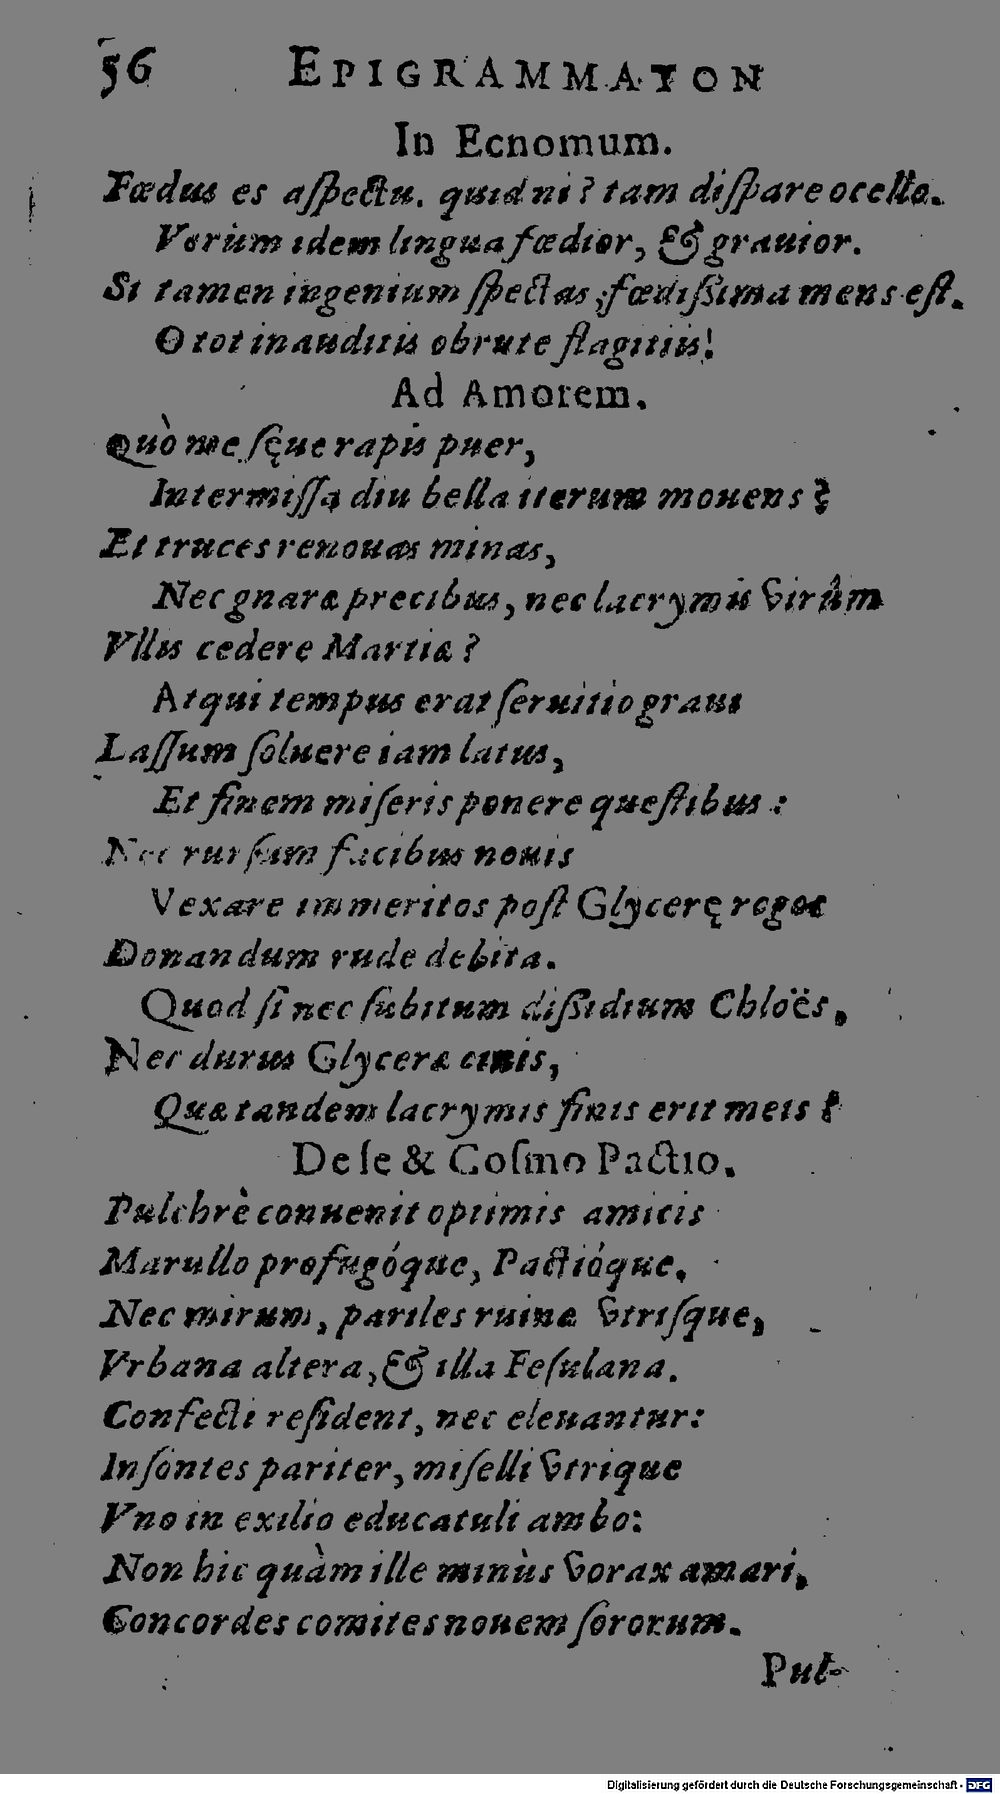 56 EPIGRAMMATON
In Ecnomum.
Fœdus es aſpectu. quid ni? tam diſpare ocello.
Verùm idem lingua fœdior, & grauior.
Si tamen ingenium ſpectas, fœdiſſima mens eſt.
O tot inauditis obrute flagitiis!
Ad Amorem.
Quò me ſęue rapis puer,
Intermiſſa diu bella iterum mouens?
Et truces renouas minas,
Nec gnara precibus, nec lacrymis virûm
Vllis cedere Martia?
Atqui tempus erat ſeruitio graui
Laſſum ſoluere iam latus,
Et finem miſeris ponere queſtibus:
Nec rurſum facibus nouis
Vexare immeritos poſt Glycerę rogos
Donandum rude debita.
Quod ſi nec ſubitum diſſidium Chloës,
Nec durus Glyceræ cinis,
Quæ tandem lacrymis finis erit meis?
De ſe & Coſmo Pactio.
Pulchrè conuenit optimis amicis
Marullo profugóque, Pactióque.
Nec mirum, pariles ruinæ vtriſque,
Vrbana altera, & illa Feſulana.
Confecti reſident, nec eleuantur:
Inſontes pariter, miſelli vtrique
Vno in exilio educatuli ambo:
Non hic quàm ille minùs vorax amari,
Concordes comites nouem ſororum.
Pul-
Digitalisierung gefördert durch die Deutsche Forschungsgemeinschaft - DFG